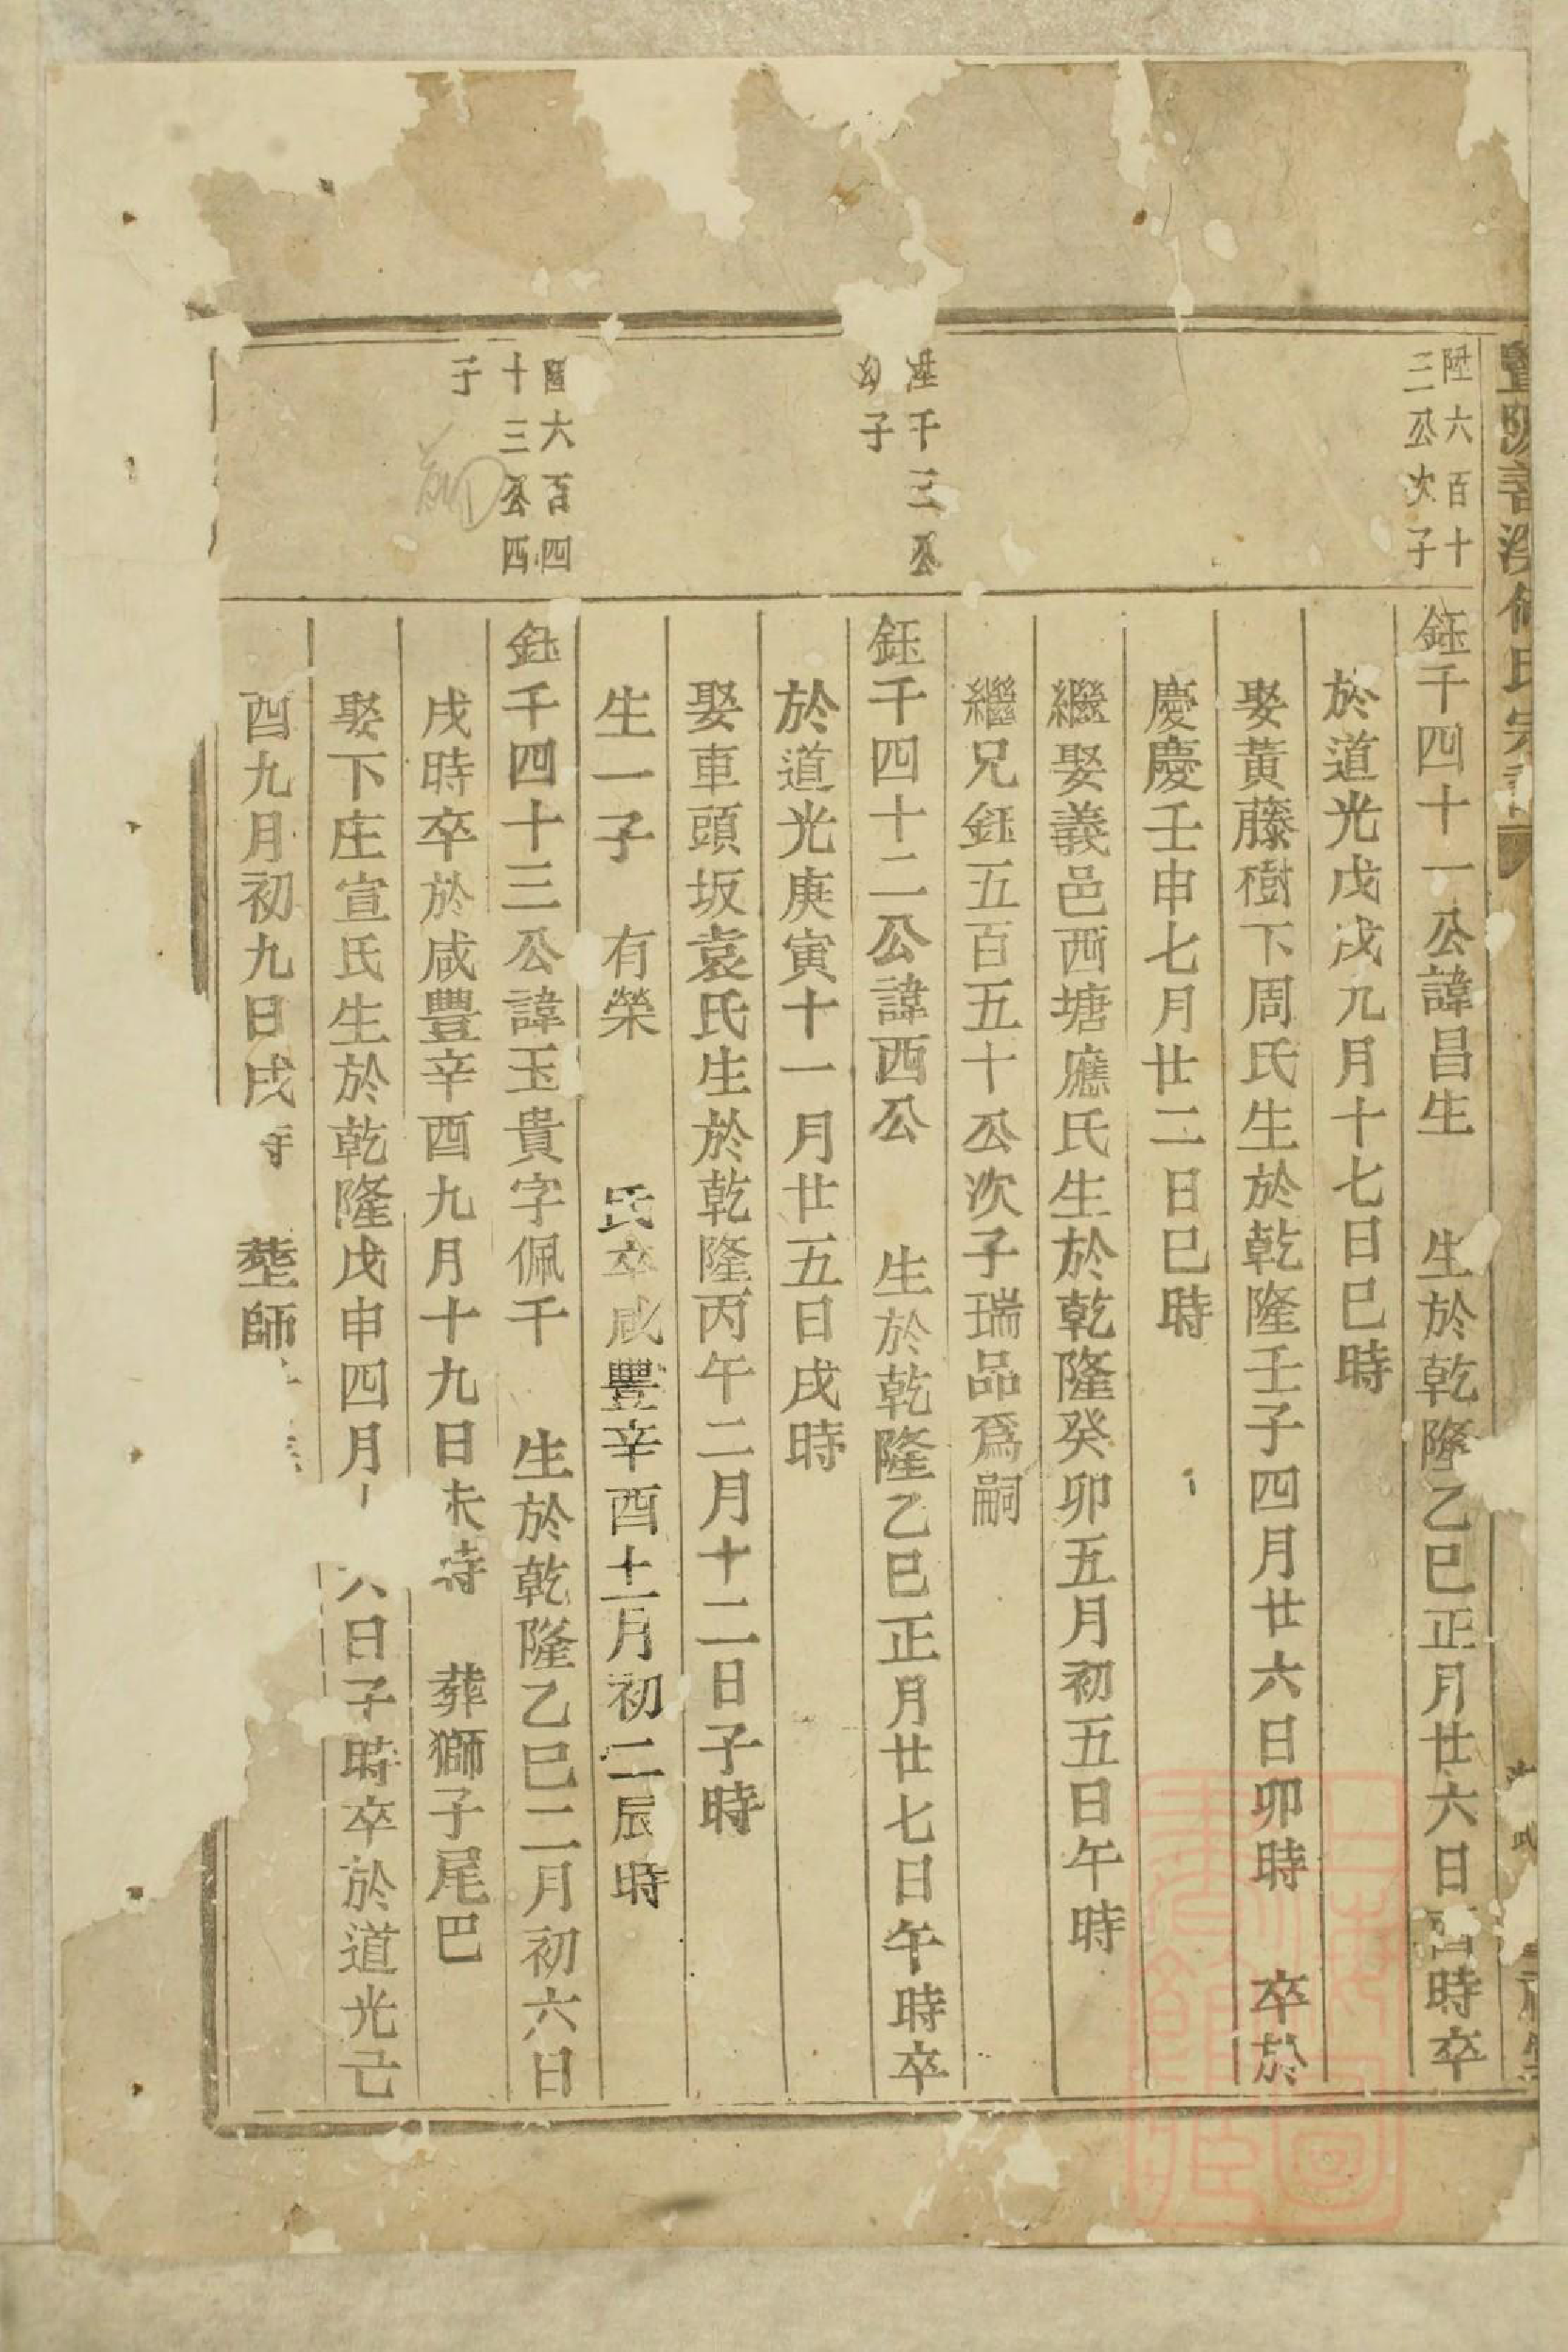 暨陽
氏宗
陞六百十
三公次子
鈺千四十一公諱昌生 生於乾隆乙巳正月廿六日時卒
於道光戊戌九月十七日巳時
娶黃藤樹下周氏生於乾隆壬子四月廿六日卯時 卒於
慶慶壬申七月廿二日巳時
繼娶義邑西塘應氏生於乾隆癸卯五月初五日午時
繼兄鈺五百五十公次子瑞品爲嗣
陞千三公
幼子
鈺千四十二公諱酉公 生於乾隆乙巳正月廿七日午時卒
於道光庚寅十一月廿五日戌時
娶車頭坂袁氏生於乾隆丙午二月十二日子時
生一子 有榮 氏卒咸豐辛酉十一月初二辰時
陞六百四
十三公四
子
鈺千四十三公諱玉貴字佩千 生於乾隆乙巳二月初六日
戌時卒於咸豐辛酉九月十九日未時 葬獅子尾巴
娶下庄宣氏生於乾隆戊申四月八日子時卒於道光己
酉九月初九日戌時 塟師